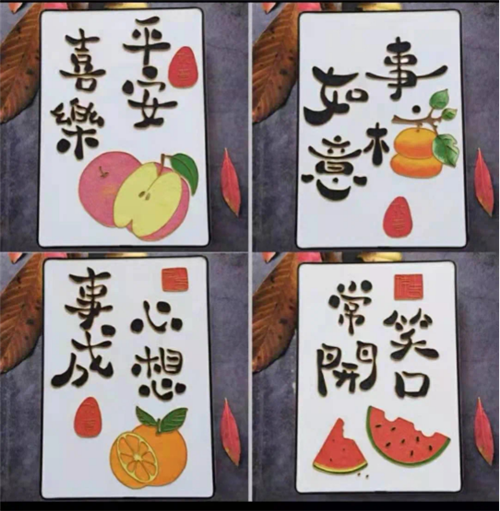 平安
喜樂
事
如意
心想
事成
笑口
常開